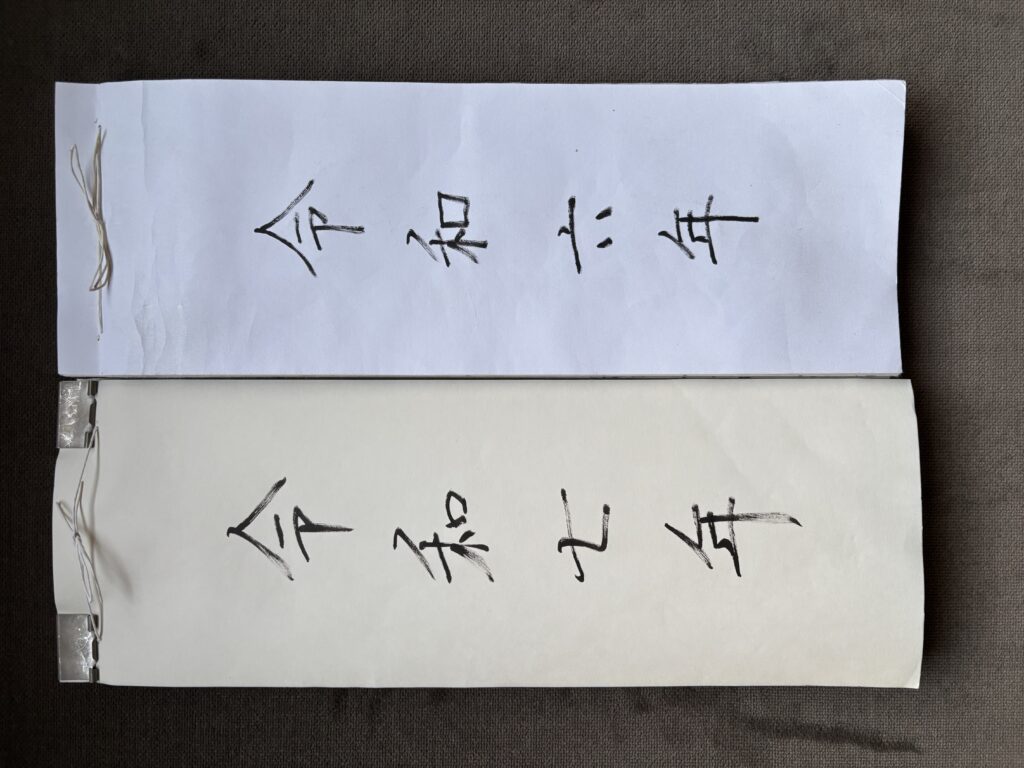 令和六年
令和七年